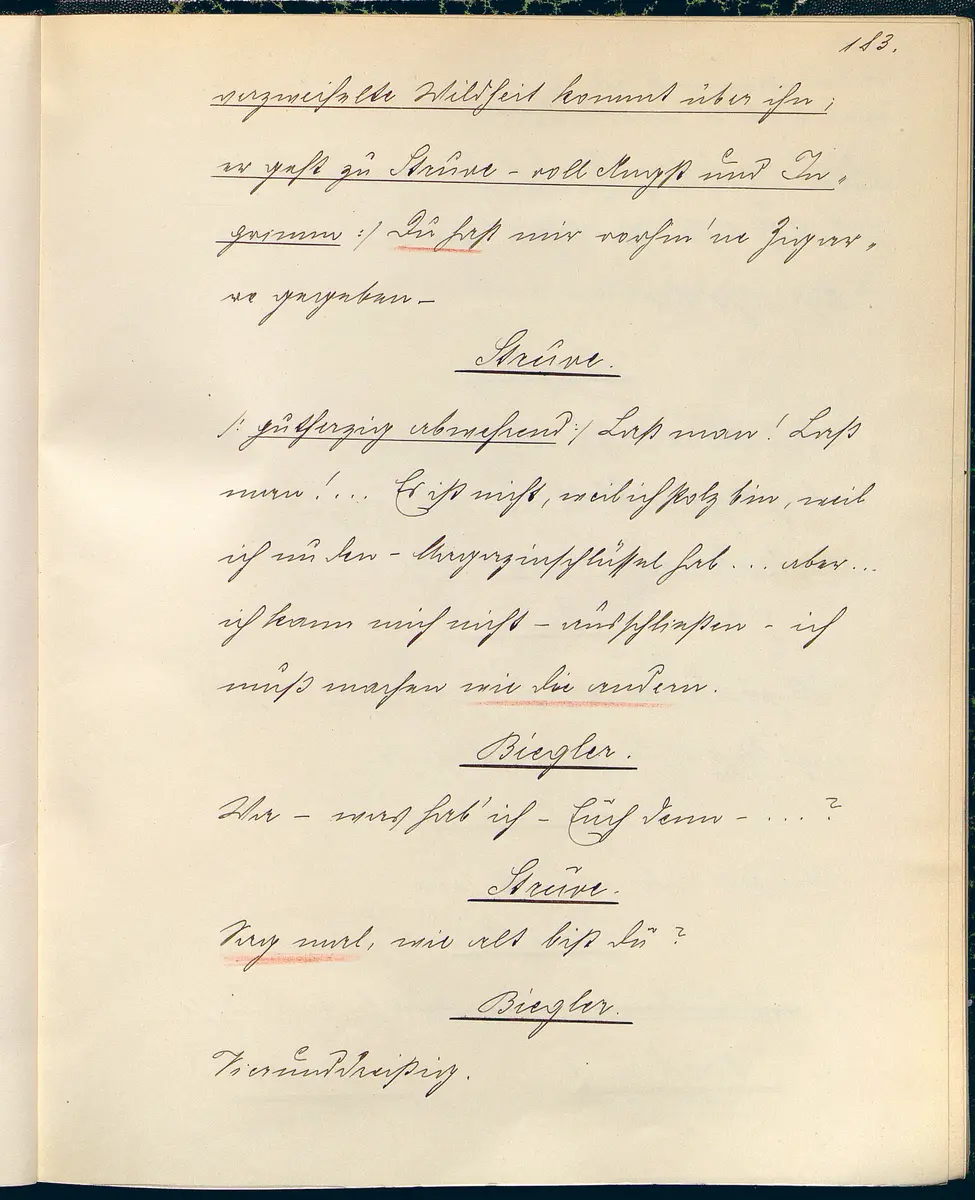 183.
verzweifelte Wildheit kommt über ihn;
er geht zu Struve – voll Angst und In-
grimm :/ Du hast mir vorhin 'ne Zigar-
re gegeben –
Struve.
/: gutherzig abwehrend :/ Laß man! Laß
man! ... Es ist nicht, weil ich stolz bin, weil
ich nu den – Magazinschlüssel hab ... aber ...
ich kann mich nicht – ausschließen – ich
muß machen wie die andern.
Biegler.
Wa – was hab' ich – Euch denn – ...?
Struve.
Sag mal, wie alt bist du?
Biegler.
Vierunddreißig.